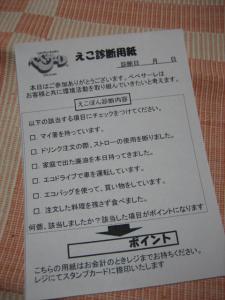 えこ診断用紙
診断日　月　日
本日はご参加ありがとうございます。ペペサーレは
お客様と共に環境活動を取り組んでいきたいと考えます。
えこぽん診断内容
以下の該当する項目にチェックをつけてください。
□. マイ箸を持っています。
□. ドリンク注文の際、ストローの使用を断りました。
□. 家庭で出た廃油を本日持ってきました。
□. エコドライブで車を運転しています。
□. エコバッグを使って、買い物をしています。
□. 注文した料理を残さず食べました。
何個、該当しましたか？該当した項目がポイントになります
ポイント
こちらの用紙はお会計のときレジまでお持ちください。
レジにてスタンプカードに捺印いたします